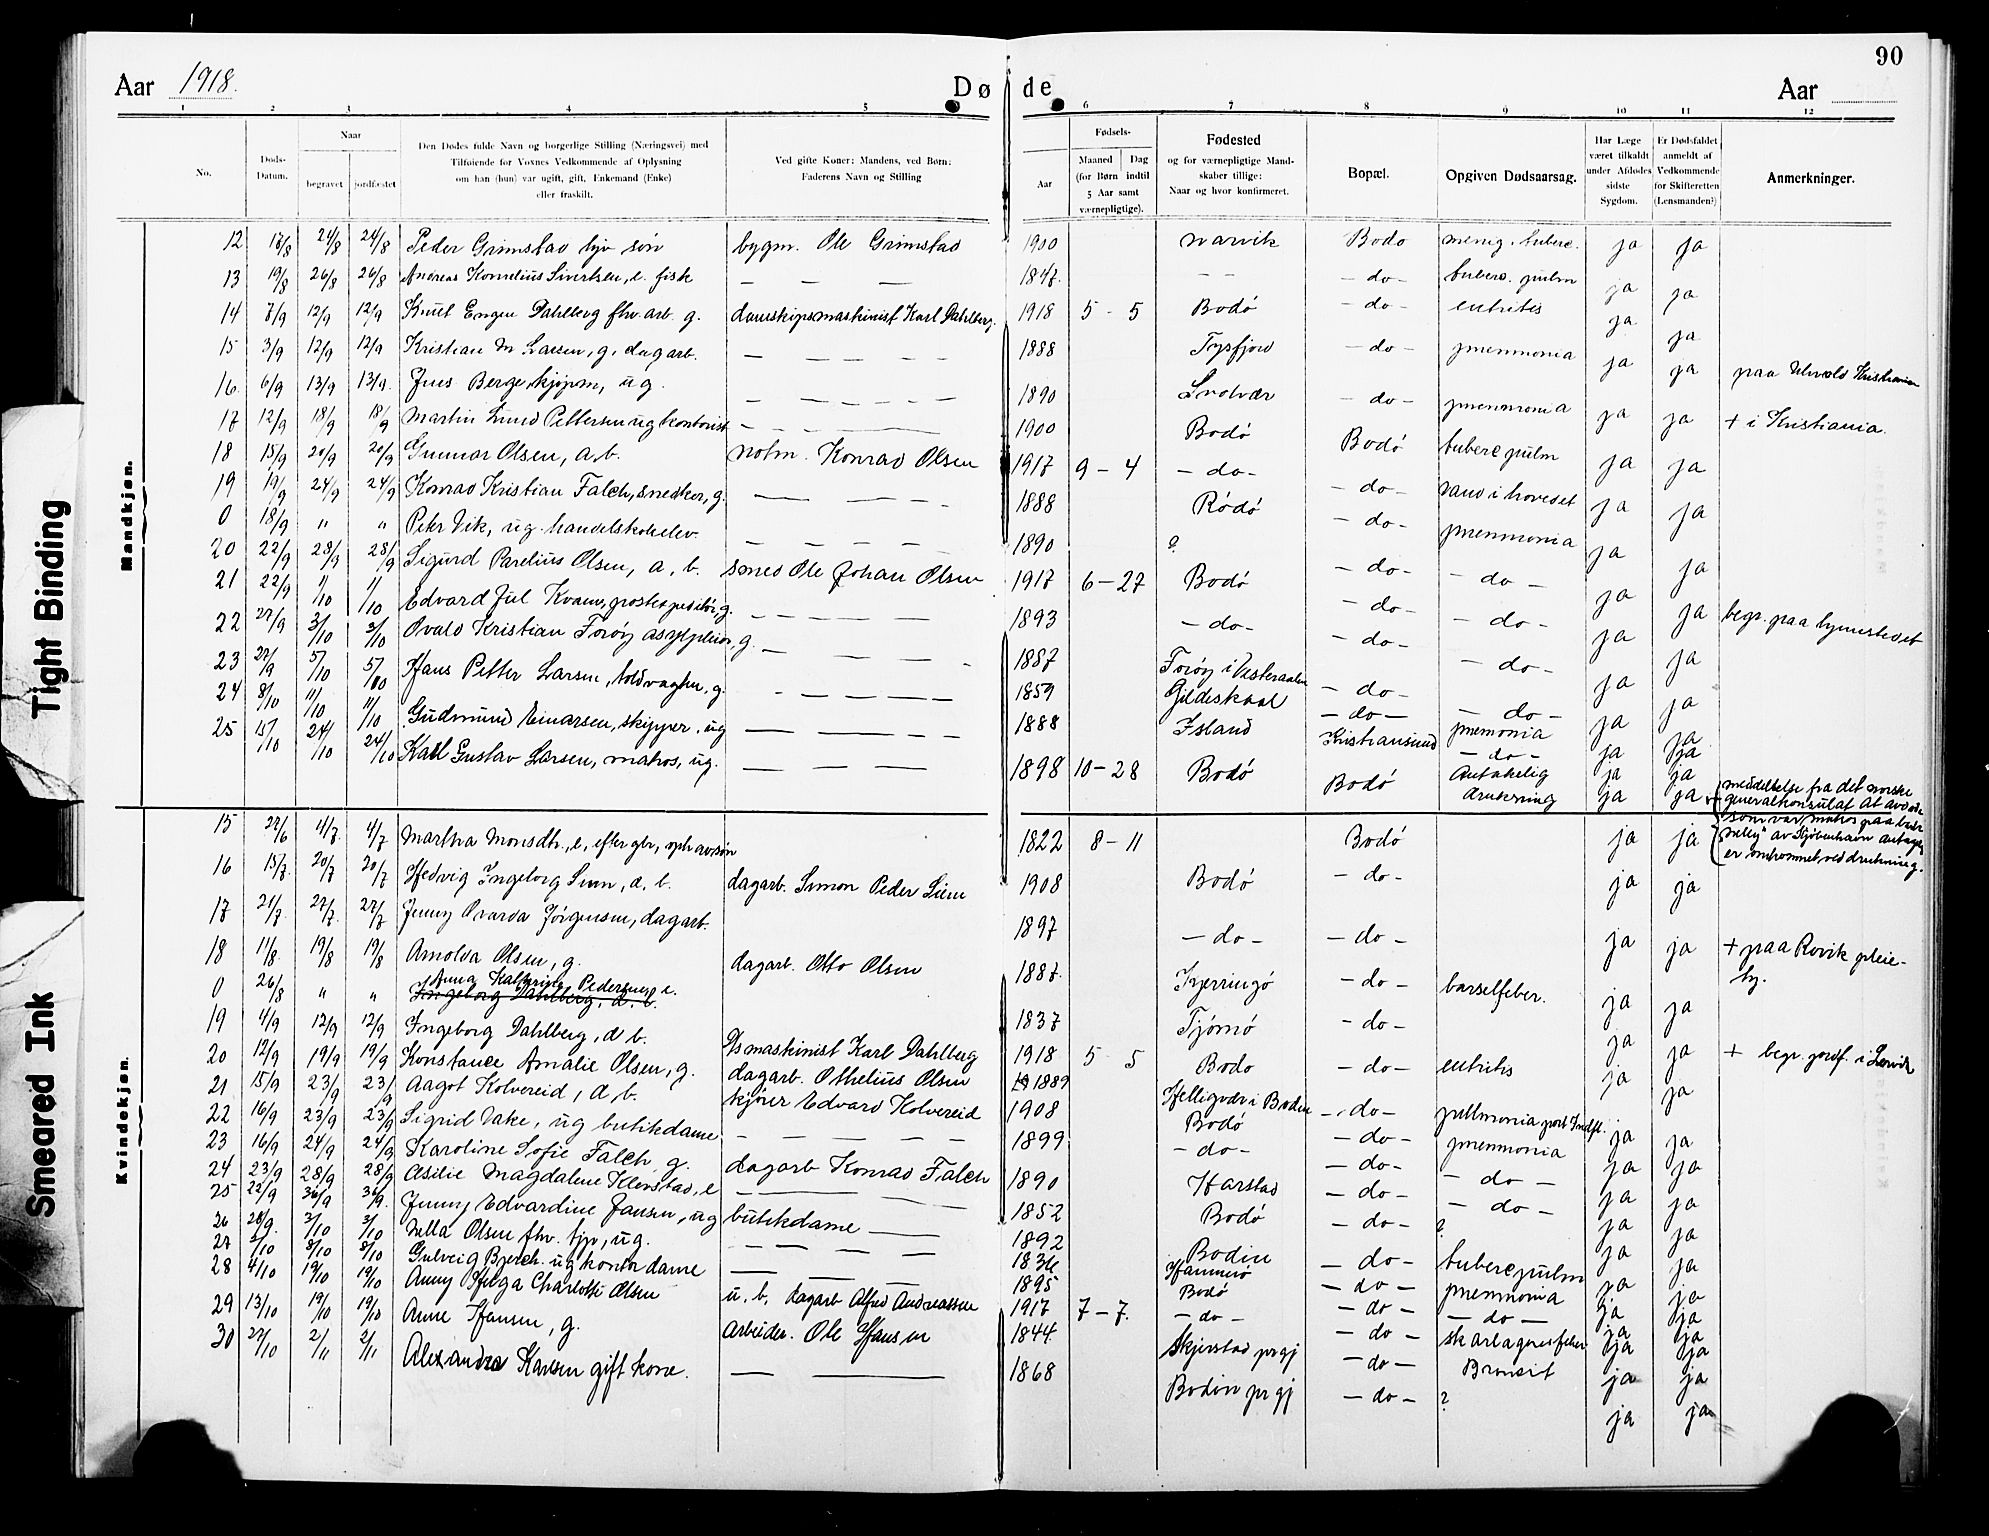 90
Aar 1918.
Døde
Aar
1 2 3 4 5 6 7 8 9 10 11 12
No.
Døds-Datum.
Naar
begravet
jordfæstet
Den Dødes fulde Navn og borgerlige Stilling (Næringsvei) med
Tilføiende for Voxnes Vedkommende af Oplysning
om han (hun) var ugift, gift, Enkemand (Enke)
eller fraskilt.
Ved gifte Koner: Mandens, ved Børn:
Faderens Navn og Stilling
Fødsels-
Aar
Maaned
(for Børn
5 Aar samt
værnepligtige).
Dag
indtil
Fødested
og for værnepligtige Mand-
skaber tillige:
Naar og hvor konfirmeret.
Bopæl.
Opgiven Dødsaarsag.
Har Læge
været tilkaldt
under Afdødes
sidste
Sygdom.
Er Dødsfaldet
anmeldt af
Vedkommende
for Skifteretten
(Lensmanden?)
Anmerkninger.
Mandkjøn.
12 17/8 24/8 24/8 Peder Grimstad hjv søn bygm. Ole Grimstad 1900 Narvik Bodø menig. tuberc. ja ja
13 19/8 26/8 26/8 Andreas Kornelius Sivertsen, e. fisk — — — 1847. — — — do — tuberc. pulm ja ja
14 7/9 12/9 12/9 Knut Engen Dahlberg fhv. arb. g. damskipsmaskinist Karl Dahlberg. 1918 5 - 5 Bodø — do — entritis ja ja
15 3/9 12/9 12/9 Kristian M Larsen, g, dagarb. — — — — — 1888 Tysfjord — do — pnenmonia ja ja
16. 6/9 13/9 13/9. Jens Berge, kjøpm, ug. — — — — — 1890 Svolvær — do — pnenmonia ja ja paa Ulvold Kristiania
17 12/9 18/9 18/9 Martin Lund Pettersen ug kontorist — — — 1900 Bodø Bodø tuberc pulm ja ja + i Kristiania.
18 15/9 20/9 20/9 Gunnar Olsen, a, b. notm. Konrad Olsen 1917 9 - 4 — do — — do — vand i hovedet ja ja
19 19/9 24/9 24/9 Konrad Kristian Falch, snedker, g. — — — — 1888 Rødø — do — pnenmonia ja ja
0 18/9 " " Peter Vik, ug. handelskolelev. — — — — — 1890 ? — do — — do — ja ja
20 22/9 28/9 28/9 Sigurd Parelius Olsen, a, b. smed Ole Johan Olsen 1917 6 - 27 Bodø — do — — do — ja ja
21 22/9 1/10 1/10 Edvard Jul Kvam, postexpeditør, g. — — — — 1893 — do — — do — — do — ja ja begr. paa hjemstedet
22 27/9 3/10 3/10 Ovald Kristian Forøy asylpleier, g. — — — — 1887 Forøy i Vesteraalen — do — — do — ja ja
23 27/9 5/10 5/10 Hans Petter Larsen, toldvagten, g. — — — — — 1859 Gildeskaal — do — pnemonia ja ja
24 8/10 11/10 11/10 Gudmund Einarsen, skipper, ug — — — — — 1888 Island Kristiansund — do — ja ja
25 15/10 24/10 24/10 Karl Gustav Larsen, matros, ug. — — — — 1898 10 - 28 Bodø Bodø Antakelig drukning ja ja
meddelelse fra det norske
generalkonsulat at avdøde
som var matros paa bark
"Nelly" av Kjøbenhavn antages
er omkommet ved drukning.
Kvindekjøn.
15 27/6 4/7 4/7 Martha Monsdtr., e, efter gbr, 1822 8 - 11 Bodø ja ja
16 15/7. 20/7 20/7 Hedvig Ingeborg Siem, d. b. dagarb. Simon Peder Siem 1908 Bodø — do — ja ja
17 21/7. 27/7. 27/7 Jenny Ovarda Jørgensen, dagarb. 1897 — do — — do — ja ja + paa Rovik pleie-
hj.
18 11/8. 19/8 19/8 Arnolda Olsen, g. dagarb. Otto Olsen 1887. Kjerringø — do — barselfeber. ja ja
0 26/8 " " Anna Kathrine Pedersen, e. 1837 Tjømø — do — ja ja
Ingeborg Dahlberg, d. b.
19 4/9 12/9 12/9 Ingeborg Dahlberg, d b. Dsmaskinist Karl Dahlberg 1918 5 5 Bodø — do — entritis ja ja + begr. jordf. i
20 12/9 19/9 19/9 Konstance Amalie Olsen, g. dagarb. Othelius Olsen 1889 Helligvær i Bodin — do — pullmonia post Indfl. ja ja
21 15/9 23/9 23/9 Aagot Kolvereid, d, b. kjører Edvard Kolvereid 1908 Bodø — do — pnenmonia ja ja
22 16/9 23/9 23/9 Sigrid Vake, ug butikdame — — — — — 1899 — do — — do — — do — ja ja
23 16/9 24/9 24/9 Karoline Sofie Falch, g. dagarb Konrad Falch 1890 Harstad — do — — do — ja ja
24 23/9 28/9 28/9 Asilie Magdalene Klevstad, e — — — 1852 Bodø — do — ? ja ja
25 22/9 30/9 30/9. Jenny Edvardine Jansen, ug butikdame — 1892 Bodin — do — tuberc pulm ja ja
26 28/9. 3/10 3/10 Nella Olsen fhv. tjp, ug. — — — — 1836 Hammerø — do — pnenmonia ja ja
27 2/10 8/10 8/10 Gulveig Bjerch. ug kontor dame — — — 1895 Bodø — do — — do — ja ja
28 4/10 19/10 19/10 Anny Helga Charlotte Olsen u. b. dagarb Alfred Andreassen 1917 7 - 7. — do — — do — skarlagensfeber ja ja
29 13/10 19/10 19/10 Anne Hansen, g. Arbeider. Ole Hansen 1844 Skjerstad prgj — do — Bronsit ja ja
30 27/10 2/11 2/11 Alexandra Karsen gift kone. — — 1868 Bodin pr gj — do — ? ja ja
Tight Binding
Smeared Ink